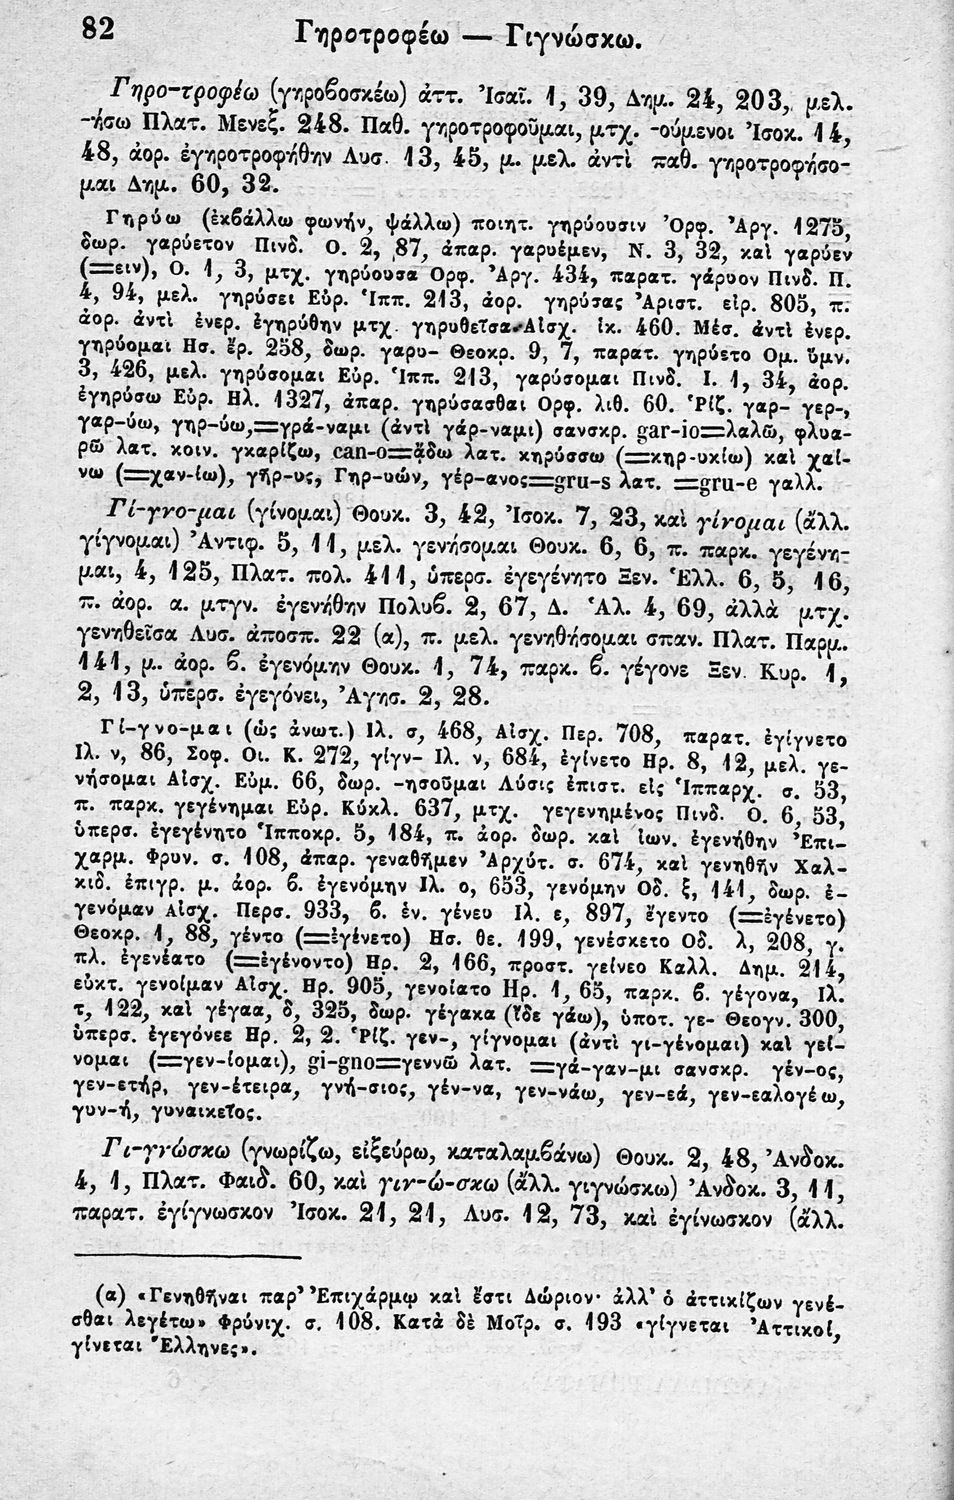 82
Γηροτροφέω — Γιγνώσκω.
Γηρο-τροφέω (γηροβοσκέω) ἀττ. Ἰσαῖ. 1, 39, Δημ. 24, 203, μελ.
-ήσω Πλατ. Μενεξ. 248. Παθ. γηροτροφοῦμαι, μτχ. -ούμενοι Ἰσοκ. 14,
48, ἀορ. ἐγηροτροφήθην Λυσ. 13, 45, μ. μελ. ἀντὶ παθ. γηροτροφήσο-
μαι Δημ. 60, 32.
Γηρύω (ἐκβάλλω φωνήν, ψάλλω) ποιητ. γηρύουσιν Ὀρφ. Ἀργ. 1275,
δωρ. γαρύετον Πινδ. Ο. 2, 87, ἀπαρ. γαρυέμεν, Ν. 3, 32, καὶ γαρύεν
(=ειν), Ο. 1, 3, μτχ. γηρύουσα Ορφ. Ἀργ. 434, παρατ. γάρυον Πινδ. Π.
4, 94, μελ. γηρύσει Εὐρ. Ἱππ. 213, ἀορ. γηρύσας Ἀριστ. εἰρ. 805, π.
ἀορ. ἀντὶ ἐνερ. ἐγηρύθην μτχ. γηρυθεῖσα Αἰσχ. ἱκ. 460. Μέσ. ἀντὶ ἐνερ.
γηρύομαι Ησ. ἔρ. 258, δωρ. γαρυ- Θεοκρ. 9, 7, παρατ. γηρύετο Ομ. ὕμν.
3, 426, μελ. γηρύσομαι Εὐρ. Ἱππ. 213, γαρύσομαι Πινδ. Ι. 1, 34, ἀορ.
ἐγηρύσω Εὐρ. Ηλ. 1327, ἀπαρ. γηρύσασθαι Ορφ. λιθ. 60. Ῥίζ. γαρ- γερ-,
γαρ-ύω, γηρ-ύω,=γρά-ναμι (ἀντὶ γάρ-ναμι) σανσκρ. gar-io=λαλῶ, φλυα-
ρῶ λατ. κοιν. γκαρίζω, can-o=ᾄδω λατ. κηρύσσω (=κηρ-υκίω) καὶ χαί-
νω (=χαν-ίω), γῆρ-υς, Γηρ-υών, γέρ-ανος=gru-s λατ. =gru-e γαλλ.
Γί-γνο-μαι (γίνομαι) Θουκ. 3, 42, Ἰσοκ. 7, 23, καὶ γίνομαι (ἄλλ.
γίγνομαι) Ἀντιφ. 5, 11, μελ. γενήσομαι Θουκ. 6, 6, π. παρκ. γεγένη-
μαι, 4, 125, Πλατ. πολ. 411, ὑπερσ. ἐγεγένητο Ξεν. Ἑλλ. 6, 5, 16,
π. ἀορ. α. μτγν. ἐγενήθην Πολυβ. 2, 67, Δ. Ἁλ. 4, 69, ἀλλὰ μτχ.
γενηθεῖσα Λυσ. ἀποσπ. 22 (α), π. μελ. γενηθήσομαι σπαν. Πλατ. Παρμ.
141, μ. ἀορ. β. ἐγενόμην Θουκ. 1, 74, παρκ. β. γέγονε Ξεν. Κυρ. 1,
2, 13, ὑπερσ. ἐγεγόνει, Ἀγησ. 2, 28.
Γί-γνο-μαι (ὡς ἀνωτ.) Ιλ. σ, 468, Αἰσχ. Περ. 708, παρατ. ἐγίγνετο
Ιλ. ν, 86, Σοφ. Οι. Κ. 272, γίγν- Ιλ. ν, 684, ἐγίνετο Ηρ. 8, 12, μελ. γε-
νήσομαι Αἰσχ. Εὐμ. 66, δωρ. -ησοῦμαι Λύσις ἐπιστ. εἰς Ἱππαρχ. σ. 53,
π. παρκ. γεγένημαι Εὐρ. Κύκλ. 637, μτχ. γεγενημένος Πινδ. Ο. 6, 53,
ὑπερσ. ἐγεγένητο Ἱπποκρ. 5, 184, π. ἀορ. δωρ. καὶ ἰων. ἐγενήθην Ἐπι-
χαρμ. Φρυν. σ. 108, ἀπαρ. γεναθῆμεν Ἀρχύτ. σ. 674, καὶ γενηθῆν Χαλ-
κιδ. ἐπιγρ. μ. ἀορ. β. ἐγενόμην Ιλ. ο, 653, γενόμην Οδ. ξ, 141, δωρ. ἐ-
γενόμαν Αἰσχ. Περσ. 933, β. ἑν. γένευ Ιλ. ε, 897, ἔγεντο (=ἐγένετο)
Θεοκρ. 1, 88, γέντο (=ἐγένετο) Ησ. θε. 199, γενέσκετο Οδ. λ, 208, γ.
πλ. ἐγενέατο (=ἐγένοντο) Ηρ. 2, 166, προστ. γείνεο Καλλ. Δημ. 214,
εὐκτ. γενοίμαν Αἰσχ. Ηρ. 905, γενοίατο Ηρ. 1, 65, παρκ. β. γέγονα, Ιλ.
τ, 122, καὶ γέγαα, δ, 325, δωρ. γέγακα (ἴδε γάω), ὑποτ. γε- Θεογν. 300,
ὑπερσ. ἐγεγόνεε Ηρ. 2, 2. Ῥίζ. γεν-, γίγνομαι (ἀντὶ γι-γένομαι) καὶ γεί-
νομαι (=γεν-ίομαι), gi-gno=γεννῶ λατ. =γά-γαν-μι σανσκρ. γέν-ος,
γεν-ετήρ, γεν-έτειρα, γνή-σιος, γέν-να, γεν-νάω, γεν-εά, γεν-εαλογέω,
γυν-ή, γυναικεῖος.
Γι-γνώσκω (γνωρίζω, εἰξεύρω, καταλαμβάνω) Θουκ. 2, 48, Ἀνδοκ.
4, 1, Πλατ. Φαιδ. 60, καὶ γιν-ώ-σκω (ἄλλ. γιγνώσκω) Ἀνδοκ. 3, 11,
παρατ. ἐγίγνωσκον Ἰσοκ. 21, 21, Λυσ. 12, 73, καὶ ἐγίνωσκον (ἄλλ.
(α) «Γενηθῆναι παρ' Ἐπιχάρμῳ καὶ ἔστι Δώριον· ἀλλ' ὁ ἀττικίζων γενέ-
σθαι λεγέτω» Φρύνιχ. σ. 108. Κατὰ δὲ Μοῖρ. σ. 193 «γίγνεται Ἀττικοί,
γίνεται Ἕλληνες».